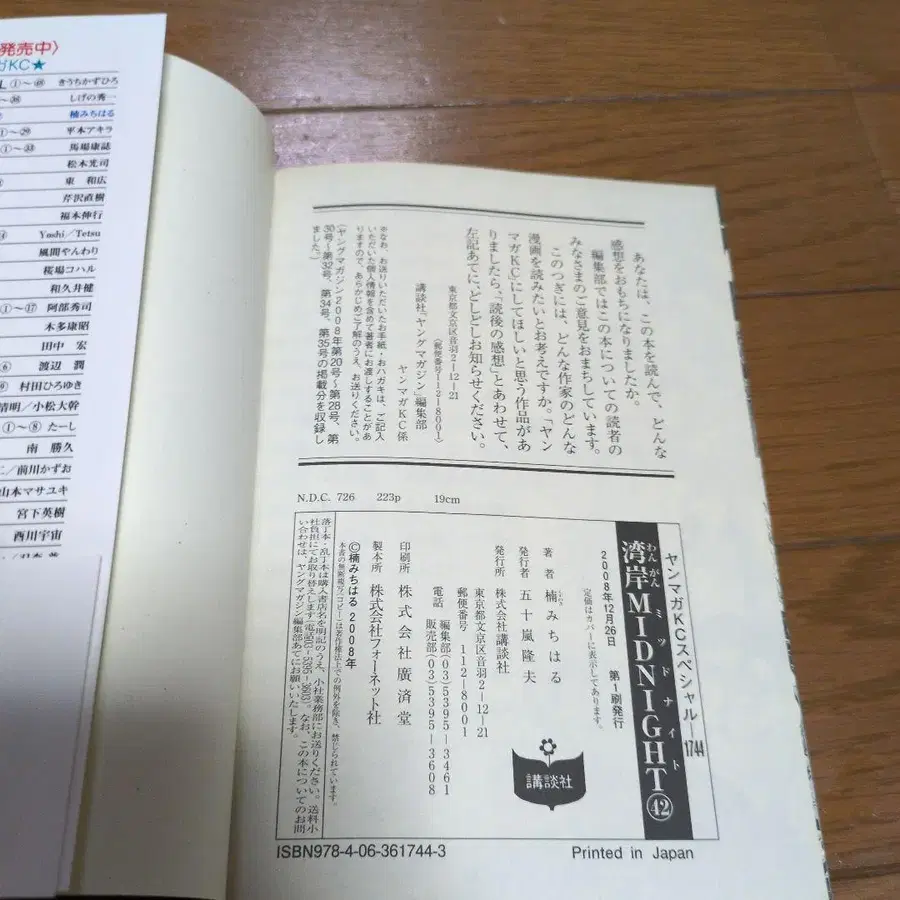 発売中〉
KC★
L ①〜㊽ きうちかずひろ
しげの秀一
楠みちはる
①〜㉙ 平本アキラ
①〜㉝ 馬場康誌
松本光司
東 和広
芹沢直樹
福本伸行
Yoshi／Tetsu
風間やんわり
桜場コハル
和久井健
①〜⑰ 阿部秀司
本多康昭
田中 宏
⑥ 渡辺 潤
村田ひろゆき
清明／小松大幹
①〜⑧ たーし
南 勝久
／前川かずお
山本マサユキ
宮下英樹
西川宇宙
あなたは、この本を読んで、どんな
感想をおもちになりましたか。
編集部ではこの本についての読者の
みなさまのご意見をおまちしています。
このつぎには、どんな作家のどんな
漫画を読みたいとお考えですか。「ヤン
マガKC」にしてほしいと思う作品があ
りましたら、「読後の感想」とあわせて、
左記あてに、どしどしお知らせください。
東京都文京区音羽2-12-21
（郵便番号112-8001）
講談社「ヤングマガジン」編集部
ヤンマガKC係
※なお、お送りいただいたお手紙・おハガキは、ご記入
いただいた個人情報を含めて著者にお渡しすることがあ
りますので、あらかじめご了解のうえ、お送りください。
（ヤングマガジン2008年第20号〜第28号、第
30号〜第32号、第34号、第35号の掲載分を収録し
ました。）
N.D.C. 726 223p 19cm
ヤンマガKCスペシャル—1744
わんがん ミッドナイト
湾岸MIDNIGHT㊷
2008年12月26日 第1刷発行
定価はカバーに表示してあります。
著者 楠みちはる
発行者 五十嵐隆夫
発行所 株式会社講談社
東京都文京区音羽2-12-21
郵便番号 112-8001
電話 編集部（03）5395-3461
販売部（03）5395-3608
印刷所 株式会社廣済堂
製本所 株式会社フォーネット社
©楠みちはる 2008年
本書の無断複写（コピー）は著作権法上での例外を除き、禁じられています。
落丁本・乱丁本は購入書店名を明記のうえ、小社業務部にお送りください。送料小
社負担にてお取り替えします（電話03-5395-3603）。なお、この本についてのお問
い合わせは、ヤングマガジン編集部あてにお願いいたします。
講談社
ISBN978-4-06-361744-3
Printed in Japan